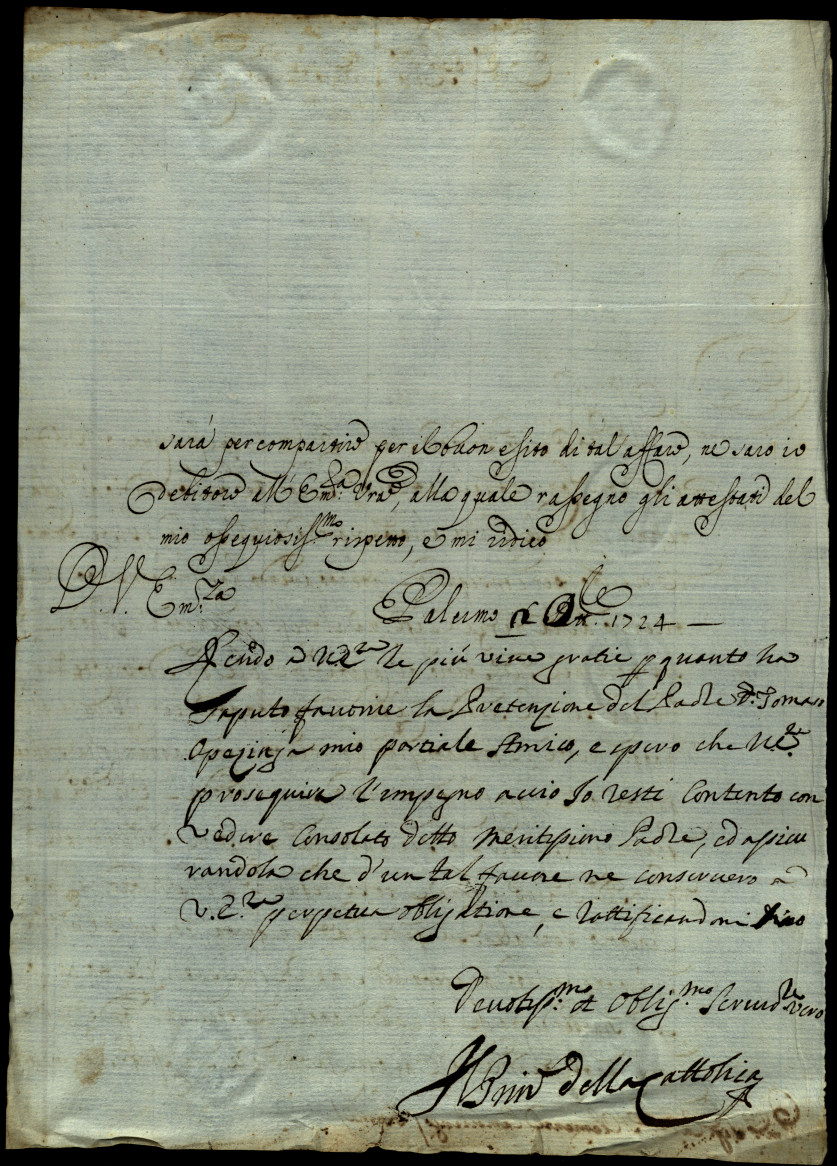 sarà per compartire per il buon esito di tal affare, ne saro io
debitore all' Em.za Vra, alla quale rassegno gli attestati del
mio ossequiosiss.mo rispetto, e mi ridico
D. V. Em.za
Palermo 2 1724
Rendo a V.E.za le più vive gratie p quanto ha
saputo favorire la Pretenzione del Padre D. Tomaso
mio partiale Amico, e spero che V.E.za
proseguirà l'impegno acciò Io resti Contento con
vedere Consolato detto meritissimo Padre, ed assicu
randola che d'un tal favore ne conserverò a
V.E.za perpetua obligatione, e rattificandomi
Devotiss.mo et Oblig.mo Servid.re vero
Il Prin della Cattolica